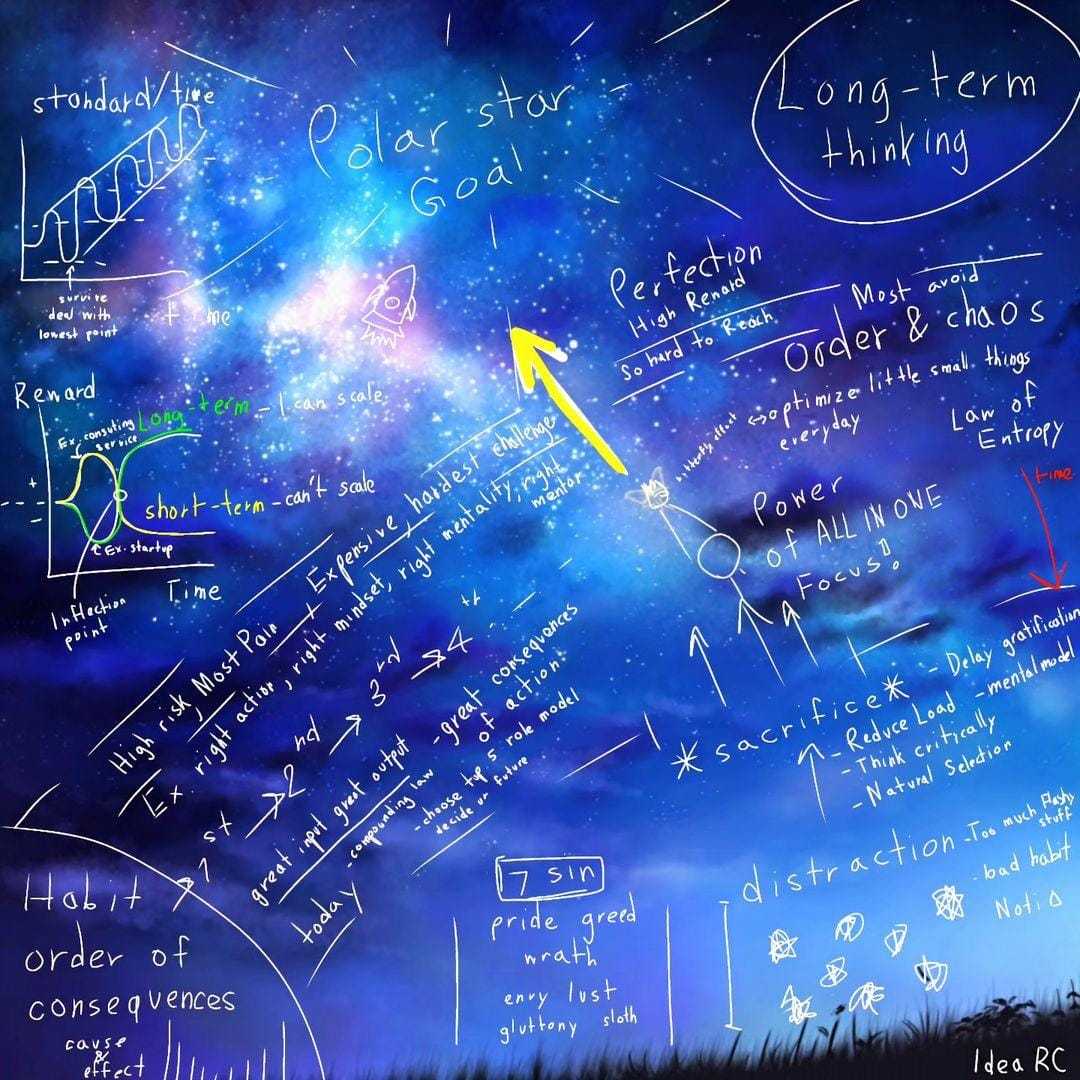 Long-term
thinking
standard/time
Polar star
Goal
survive
deal with
lowest point
time
Perfection
High Reward
So hard to Reach
Most avoid
Order & chaos
butterfly effect
optimize little small things
everyday
Law of
Entropy
time
Reward
Ex. consuting
service
Long-term - I can scale
+
-
short-term - can't scale
Ex. startup
Time
Inflection
point
Power
of ALL IN ONE
Focus!
High risk, Most Pain, Expensive, hardest challenge
Ex right action, right mindset, right mentality, right
mentor
1 st
2 nd
3 rd
4
great input great output
- compounding law
today
- great consequences
of action
- choose top 5 role model
decide ur future
*sacrifice*
- Delay gratification
- mental model
- Reduce Load
- Think critically
- Natural Selection
distraction
- Too much Flashy
stuff
- bad habit
Noti
Habit
order of
consequences
cause
&
effect
7 sin
pride greed
wrath
envy lust
gluttony sloth
Idea RC